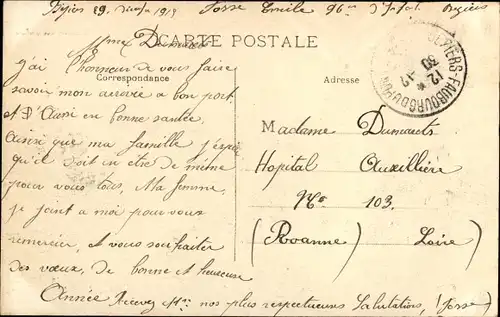 Béziers 29. 1915 Josse Emile 96me d'Infat. Béziers
CARTE POSTALE
Mme Dumarets
J'ai l'honneur de vous faire
Correspondance
savoir mon arrivée a bon port
et d'Aussi en bonne santée,
Ainsi que ma famille j'espère
qu'il doit en etre de même
pour vous tous, Ma femme,
se joint a moi pour vous
remercier, et vous souhaiter
des vœux, de bonne et heureuse
Année Recevez Mme nos plus respectueuses Salutations, (Josse)
Adresse
Madame Dumarets
Hopital Auxillière
No 103.
(Roanne) Loire)
BEZIERS-FAUBOURG DU PONT
12 *
30 -12